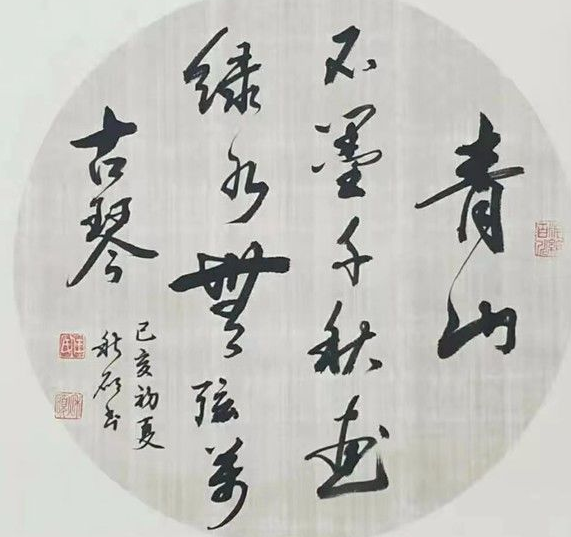 青山
不墨千秋画
绿水無弦萬
古琴
己亥初夏
秋硕书